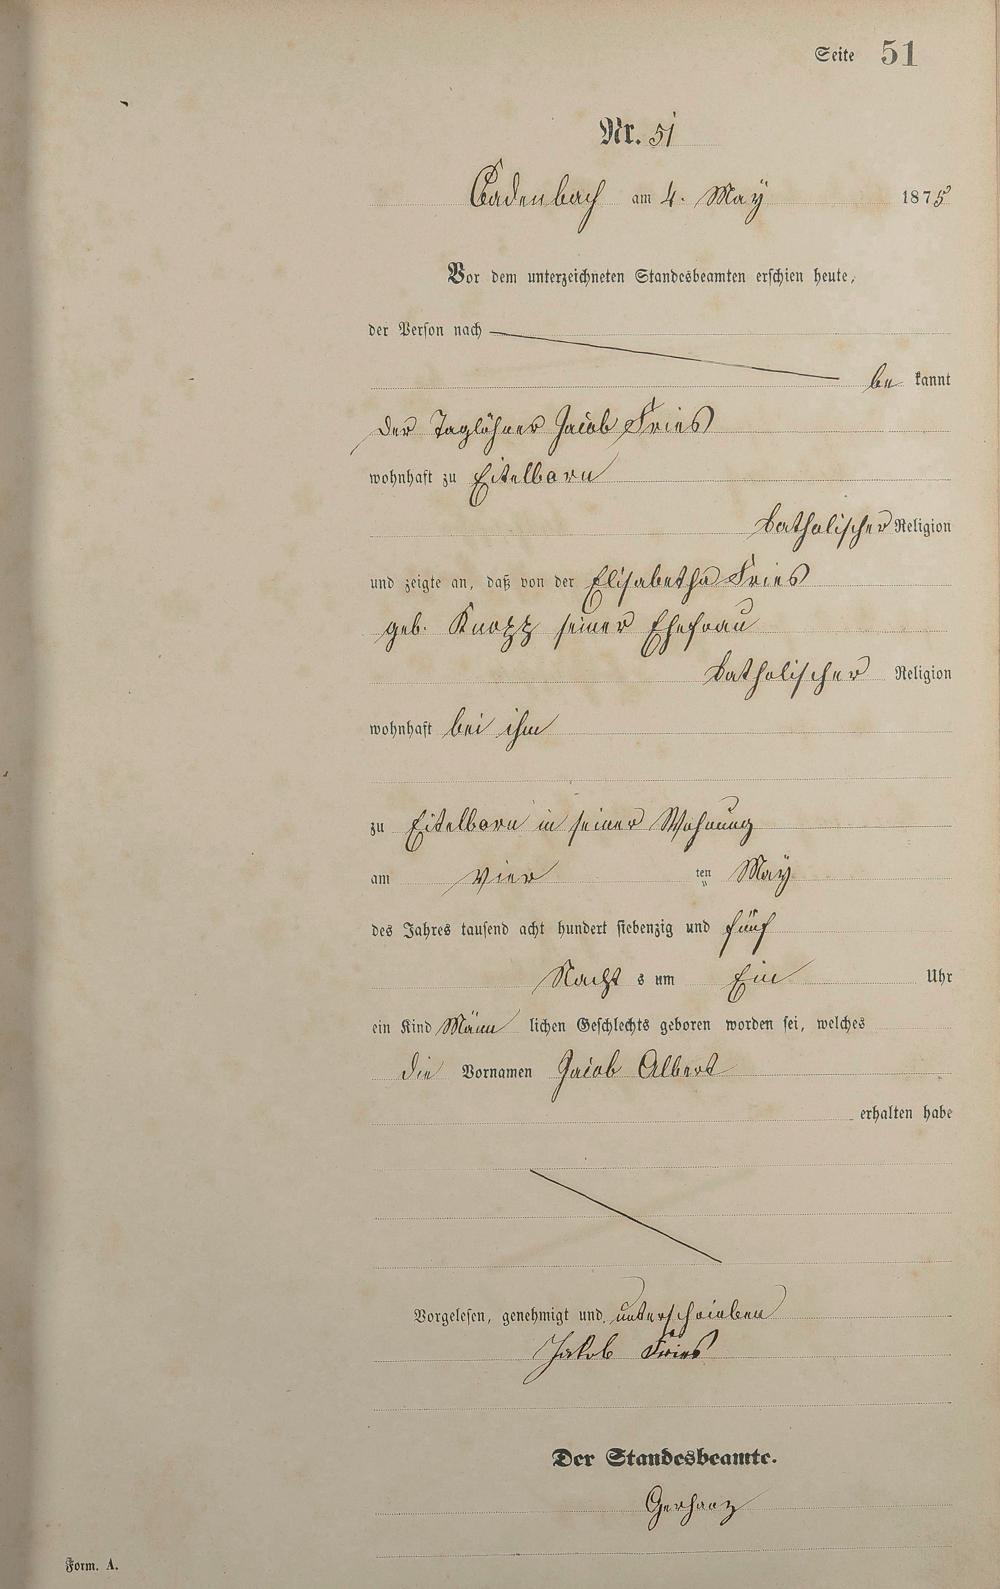 Seite 51
Nr. 51
Cadenbach am 4. Maÿ 1875
Vor dem unterzeichneten Standesbeamten erschien heute,
der Person nach
be kannt
der Taglöhner Jacob Fries
wohnhaft zu Eitelborn
katholischer Religion
und zeigte an, daß von der Elisabetha Fries
geb. Knopp seiner Ehefrau
katholischer Religion
wohnhaft bei ihm
zu Eitelborn in seiner Wohnung
am vier ten Maÿ
des Jahres tausend acht hundert siebenzig und fünf
Nacht s um Ein Uhr
ein Kind Männ lichen Geschlechts geboren worden sei, welches
die Vornamen Jacob Albert
erhalten habe
Vorgelesen, genehmigt und unterschrieben
Jakob Fries
Der Standesbeamte.
Gerharz
Form. A.